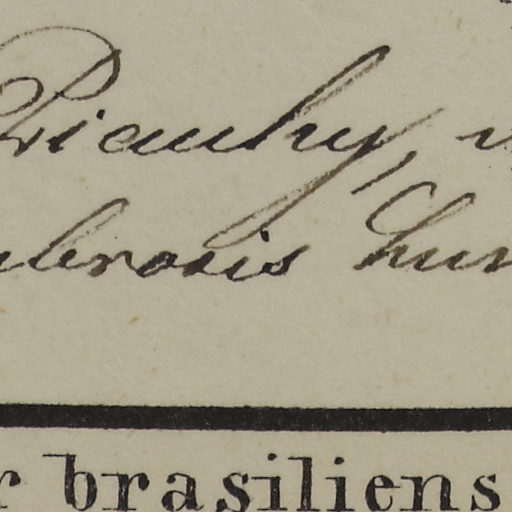 Piauhy,
umbrosis hum
r brasiliens